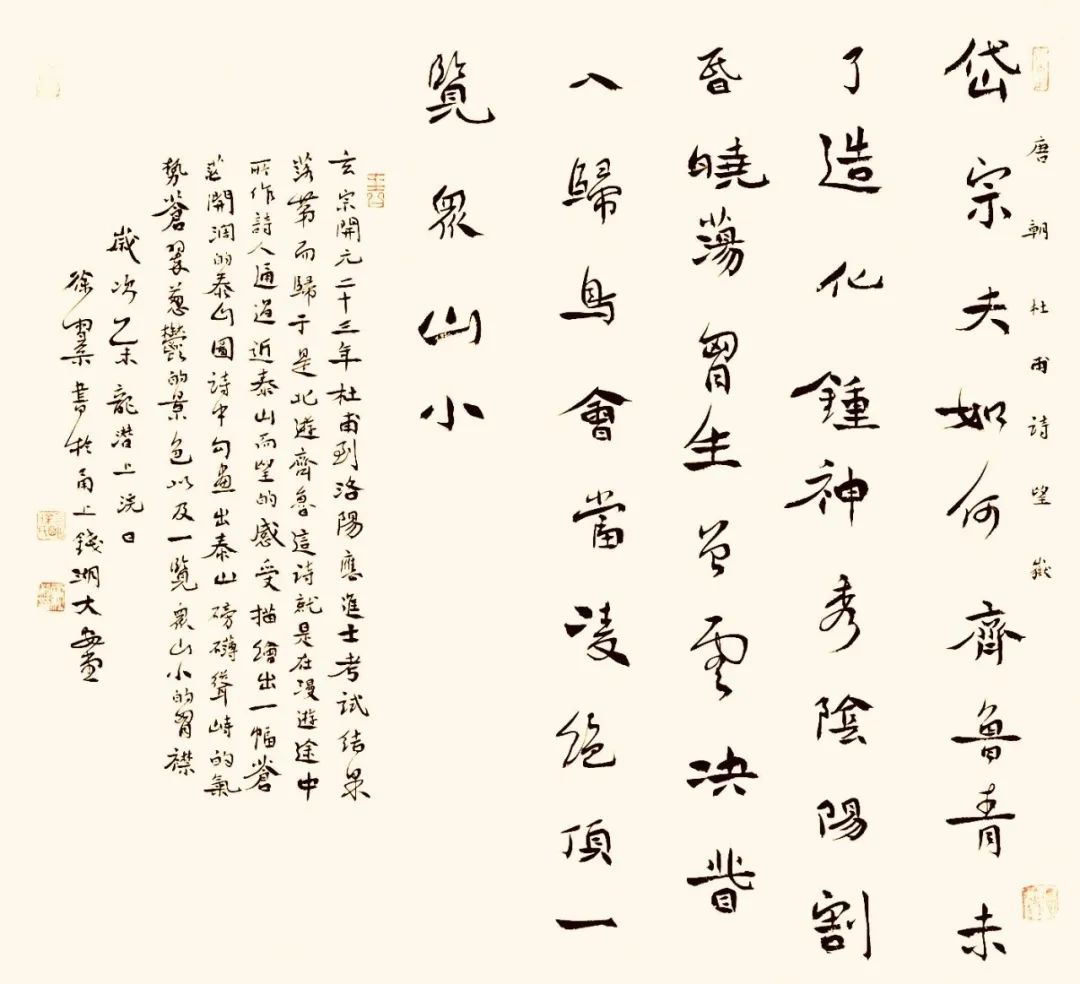 唐朝杜甫詩望嶽
岱宗夫如何齊魯青未
了造化鍾神秀陰陽割
昏曉蕩胷生曾雲決眥
入歸鳥會當凌絕頂一
覽眾山小
玄宗開元二十三年杜甫到洛陽應進士考試結果
落第而歸于是北遊齊魯這詩就是在漫遊途中
所作詩人通過近泰山而望的感受描繪出一幅蒼
茫開闊的泰山圖詩中勾畫出泰山磅礴聳峙的氣
勢蒼翠蔥鬱的景色以及一覽眾山小的胷襟
歲次乙未龍潛上浣日
徐翼書於甬上錢湖大畫